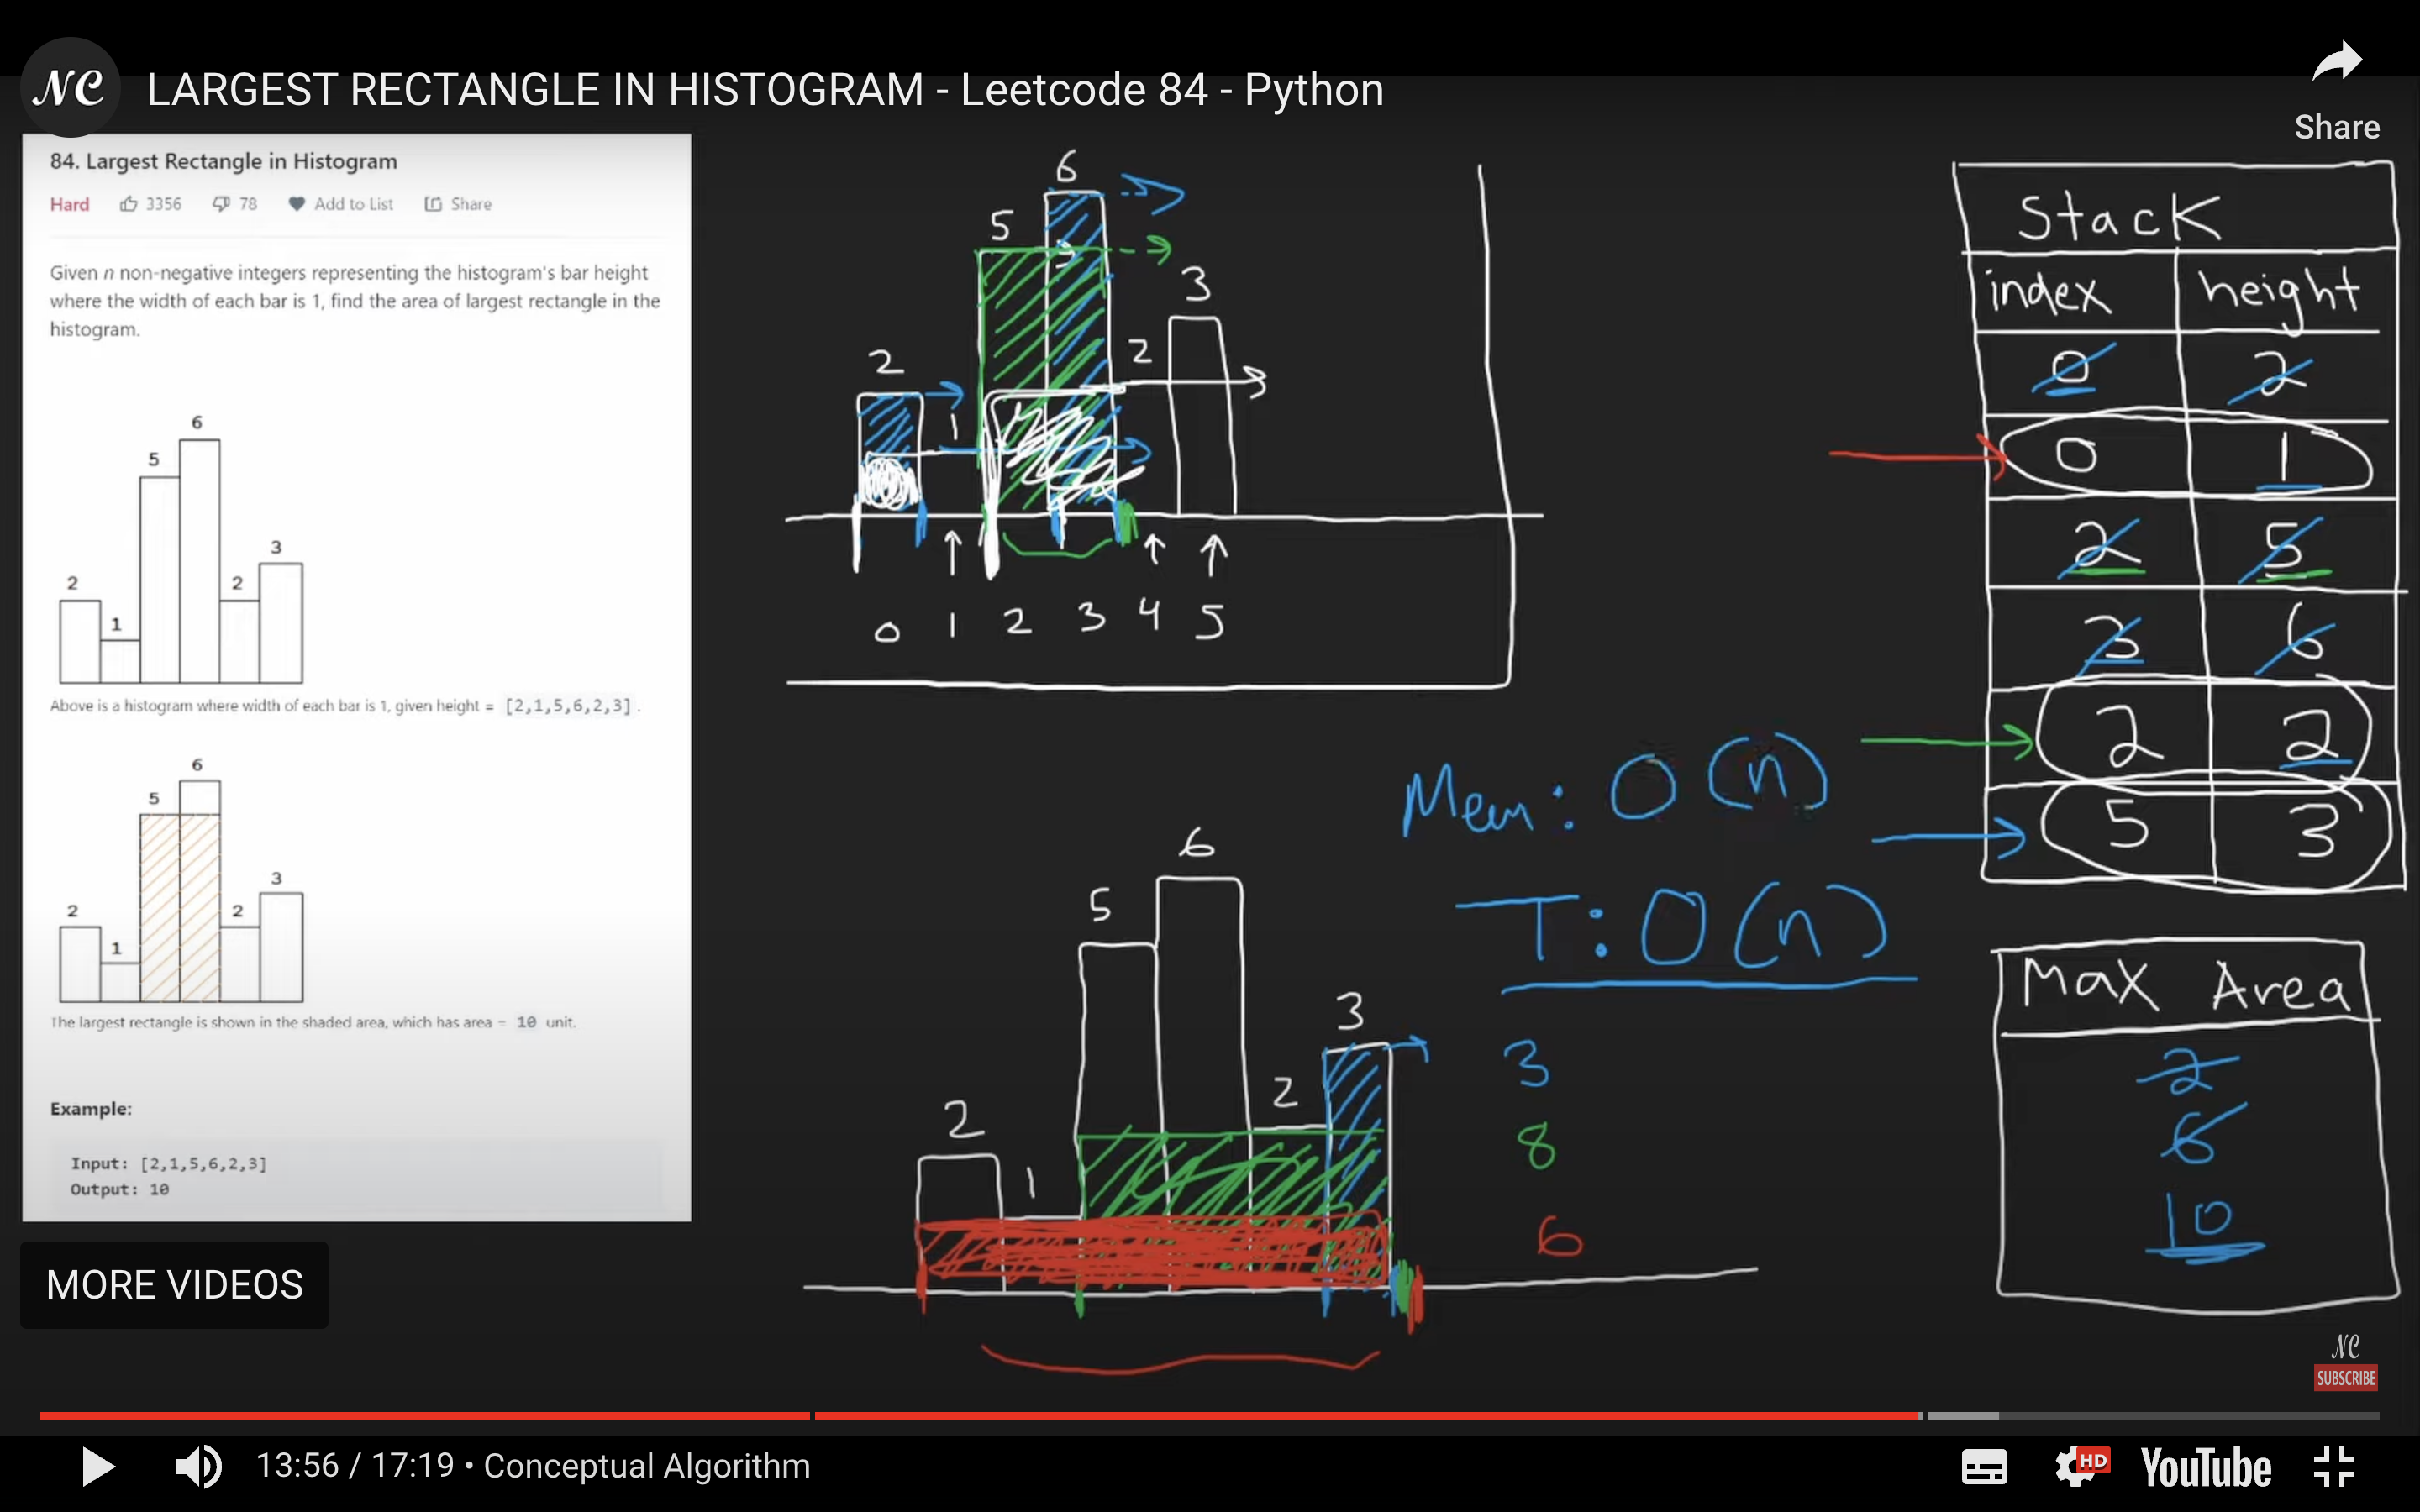 NC
LARGEST RECTANGLE IN HISTOGRAM - Leetcode 84 - Python
Share
84. Largest Rectangle in Histogram
Hard 3356 78 Add to List Share
Given n non-negative integers representing the histogram's bar height
where the width of each bar is 1, find the area of largest rectangle in the
histogram.
6
5
3
2
2
1
Above is a histogram where width of each bar is 1, given height = [2,1,5,6,2,3].
6
5
3
2
2
1
The largest rectangle is shown in the shaded area, which has area = 10 unit.
Example:
Input: [2,1,5,6,2,3]
Output: 10
MORE VIDEOS
6
5
3
2
2
1
0 1 2 3 4 5
Mem: O(n)
T: O(n)
6
5
3
2
2
1
3
8
6
Stack
index height
0 2
0 1
2 5
3 6
2 2
5 3
Max Area
2
6
10
NC
SUBSCRIBE
13:56 / 17:19 • Conceptual Algorithm
HD
YouTube